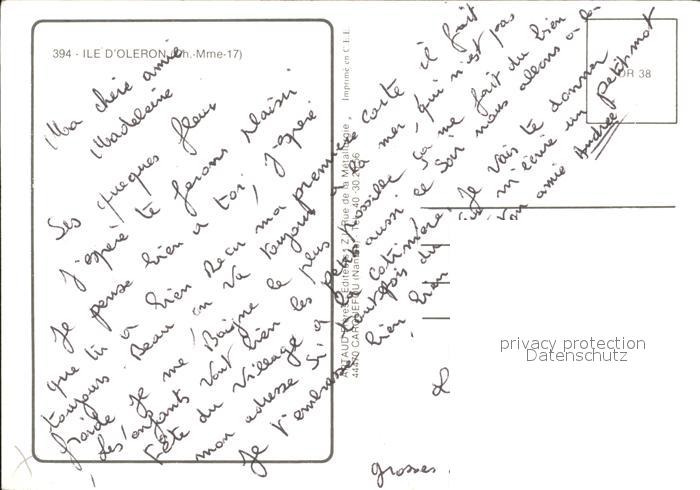 394 - ILE D'OLERON (Ch.-Mme-17)
Imprimé en C.E.E.
DR 38
Ma chère amie
Madeleine
Ses quelques fleurs
j'espère te ferons plaisir
Je pense bien a toi, j'espère
que tu a bien Reçu ma première carte il fait
toujours Beau, on va toujours a la mer, qui n'est pas
froide je me Baigne le plus possible Sa me fait du bien
Les enfants vont bien les aussi ce Soir nous allons a la
Fête du Village a la Cotinière. Je Vais te donner
mon adresse Si toutefois tu m'écrire un petit mot
Je t'embrasse bien, bien ton amie Andrée
grosses
ARTAUD Frères, Editeurs - Z.I., Rue de la Métallurgie,
44470 CARQUEFOU (Nantes) - Tél. 40.30
privacy protection
Datenschutz